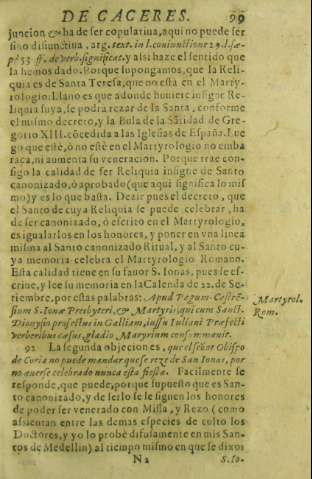 DE CACERES. 99
juncion & ha de ser copulativa, aqui no puede ser
sino disiunctiva, arg. text. in l. coniunctione 29. l. sæ-
pè 53 ff. de verb. significat. y alsi haze el sentido que
la hemos dado. Porque supongamos, que la Reli-
quia es de Santa Teresa, que no està en el Marty-
rologio. Llano es que adonde huviere insigne Re-
liquia suya, se podra rezar de la Santa, conforme
el mismo decreto, y la Bula de la Sãtidad de Gre-
gorio XIII. cõcedida a las Iglesias de España. Lue
go que estè, ò no estè en el Martyrologio no emba
raca, ni aumenta su veneracion. Porque trae con-
sigo la calidad de ser Reliquia insigne de Santo
canonizado, ò aprobado (que aqui significa lo mis
mo) y es lo que basta. Dezir pues el decreto, que
el Santo de cuya Reliquia se puede celebrar, ha
de ser canonizado, ò escrito en el Martyrologio,
es igualarlos en los honores, y poner en vna linea
misma al Santo canonizado Ritual, y al Santo cu-
ya memoria celebra el Martyrologio Romano.
Esta calidad tiene en su favor S. Ionas, pues se es-
crive, y lee su memoria en la Calenda de 22. de Se-
tiembre, por estas palabras: Apud Pagum Castrẽ-
sium S. Ionæ Presbyteri, & Martyris, qui cum Sanct.
Dionysio profectus in Galliam, iussu Iuliani Præfecti
verberibus cæsus, gladio Martyrium consummavit.
Martyrol.
Rom.
92 La segunda objecion es, que el señor Obispo
de Coria no puede mandar que se reze de San Ionas, por
no averse celebrado nunca esta fiesta. Facilmente se
responde, que puede, porque supuesto que es San-
to canonizado, y de serlo se le siguen los honores
de poder ser venerado con Missa, y Rezo (como
assientan entre las demas especies de culto los
Doctores, y yo lo probè difusamente en mis San-
tos de Medellin) al tiempo mismo en que se dixos
N 2 S. Io-